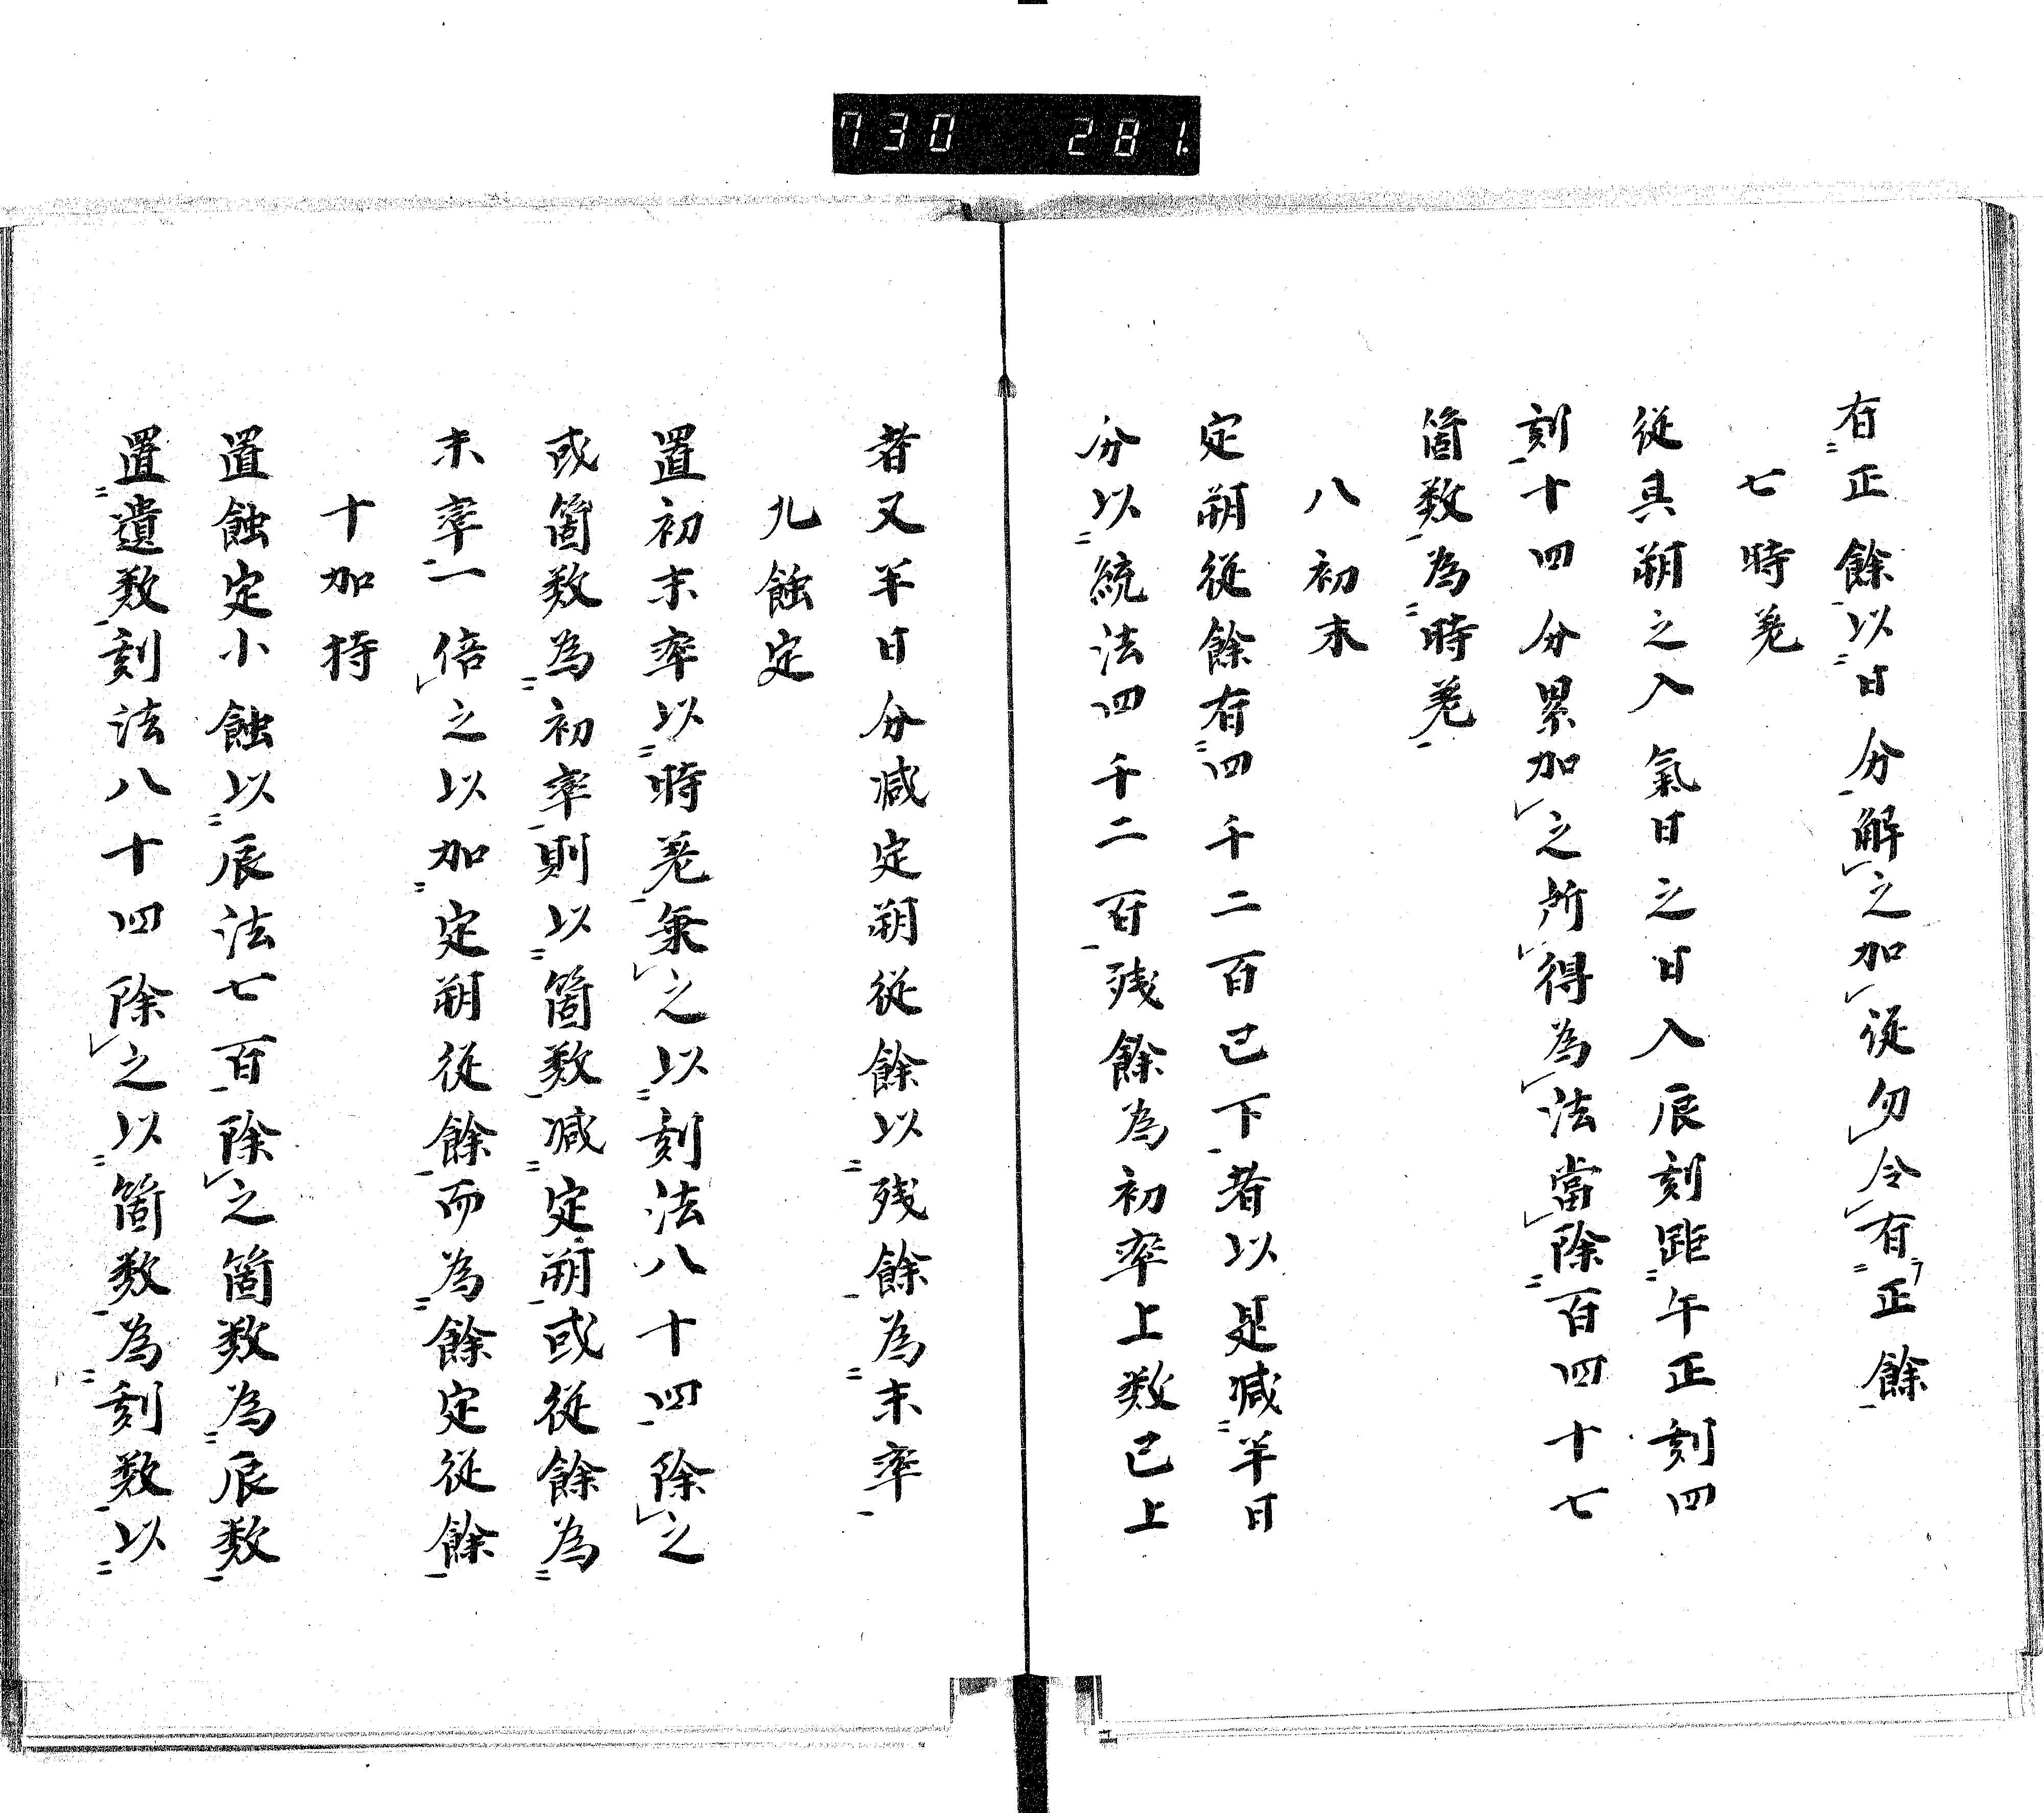 730 281.
有正餘以日分解之加從勿令有正餘
七時差
從具朔之入氣日之日入辰刻距午正刻四
刻十四分累加之所得為法當除百四十七
箇数為時差
八初末
定朔從餘有四千二百已下者以是减半日
分以統法四千二百残餘為初率上数已上
者又半日分减定朔從餘以残餘為末率
九蝕定
置初末率以時差乗之以刻法八十四除之
或箇数為初率則以箇数减定朔或從餘為
末率一倍之以加定朔從餘而為餘定從餘
十加持
置蝕定小蝕以辰法七百除之箇数為辰数
置遺数刻法八十四除之以箇数為刻数以